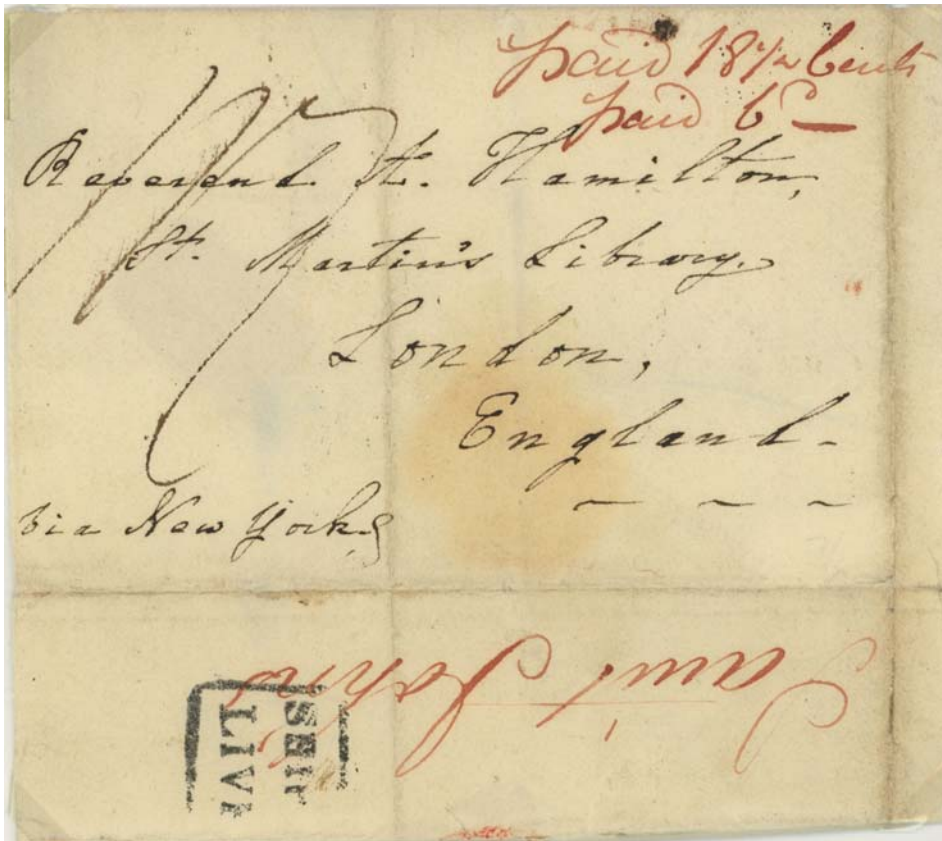 paid 18 1/2 Cents
paid 6d
Reverend A. Hamilton,
St. Martin's Library.
London,
England-
via New York
Saint Johns
SHIP
LIV